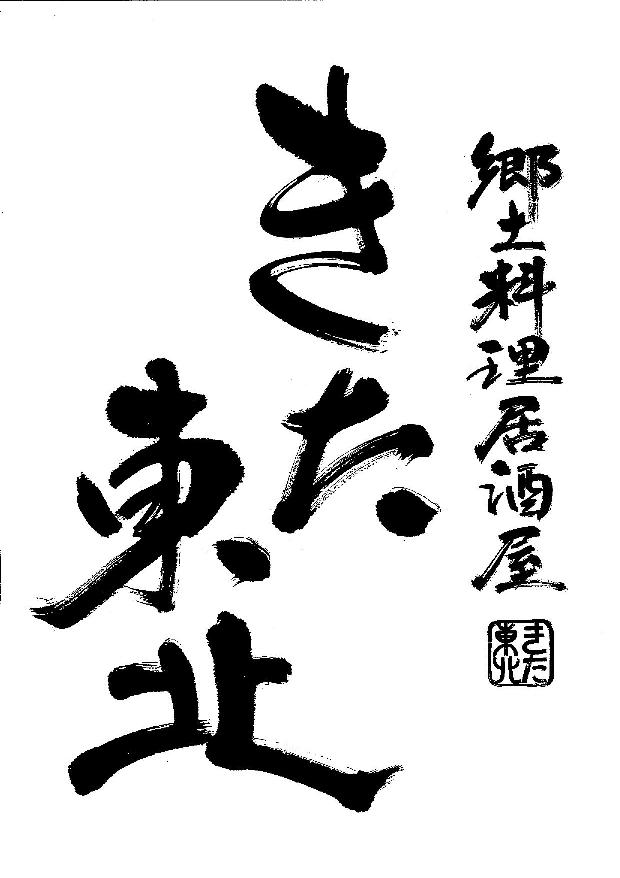 郷土料理居酒屋
きた
東北
きた
東北